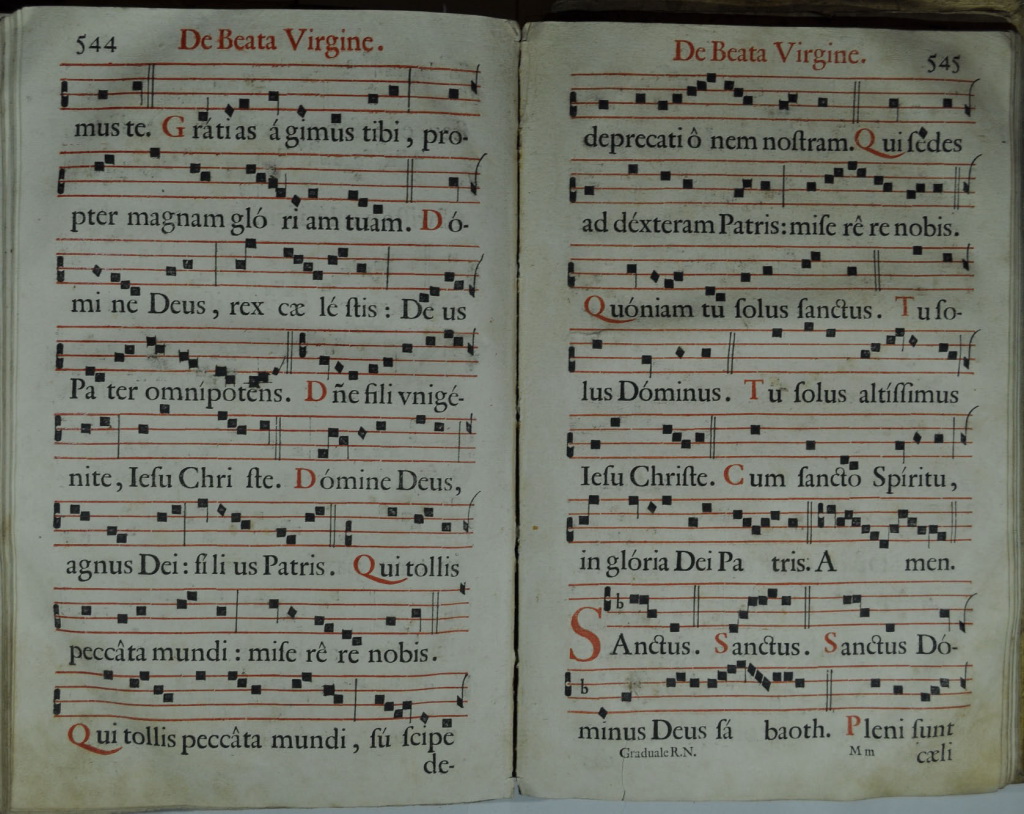 544
De Beata Virgine.
mus te. G rátias á gimus tibi, pro-
pter magnam gló ri am tuam. D ó-
mi ne Deus, rex cæ lé ſtis: De us
Pa ter omnípotens. D ñe fili vnigé-
nite, Ieſu Chri ſte. D ómine Deus,
agnus Dei: fi li us Patris. Qui tollis
peccâta mundi: miſe rê re nobis.
Qui tollis peccâta mundi, ſú ſcipe
de-
De Beata Virgine.
545
deprecati ô nem noſtram. Qui ſedes
ad déxteram Patris: miſe rê re nobis.
Quóniam tu ſolus ſanctus. T u ſo-
lus Dóminus. T u ſolus altíſſimus
Ieſu Chriſte. C um ſancto Spíritu,
in glória Dei Pa tris. A men.
SAnctus. Sanctus. Sanctus Dó-
minus Deus ſá baoth. Pleni ſunt
Graduale R.N.
M m
cæli